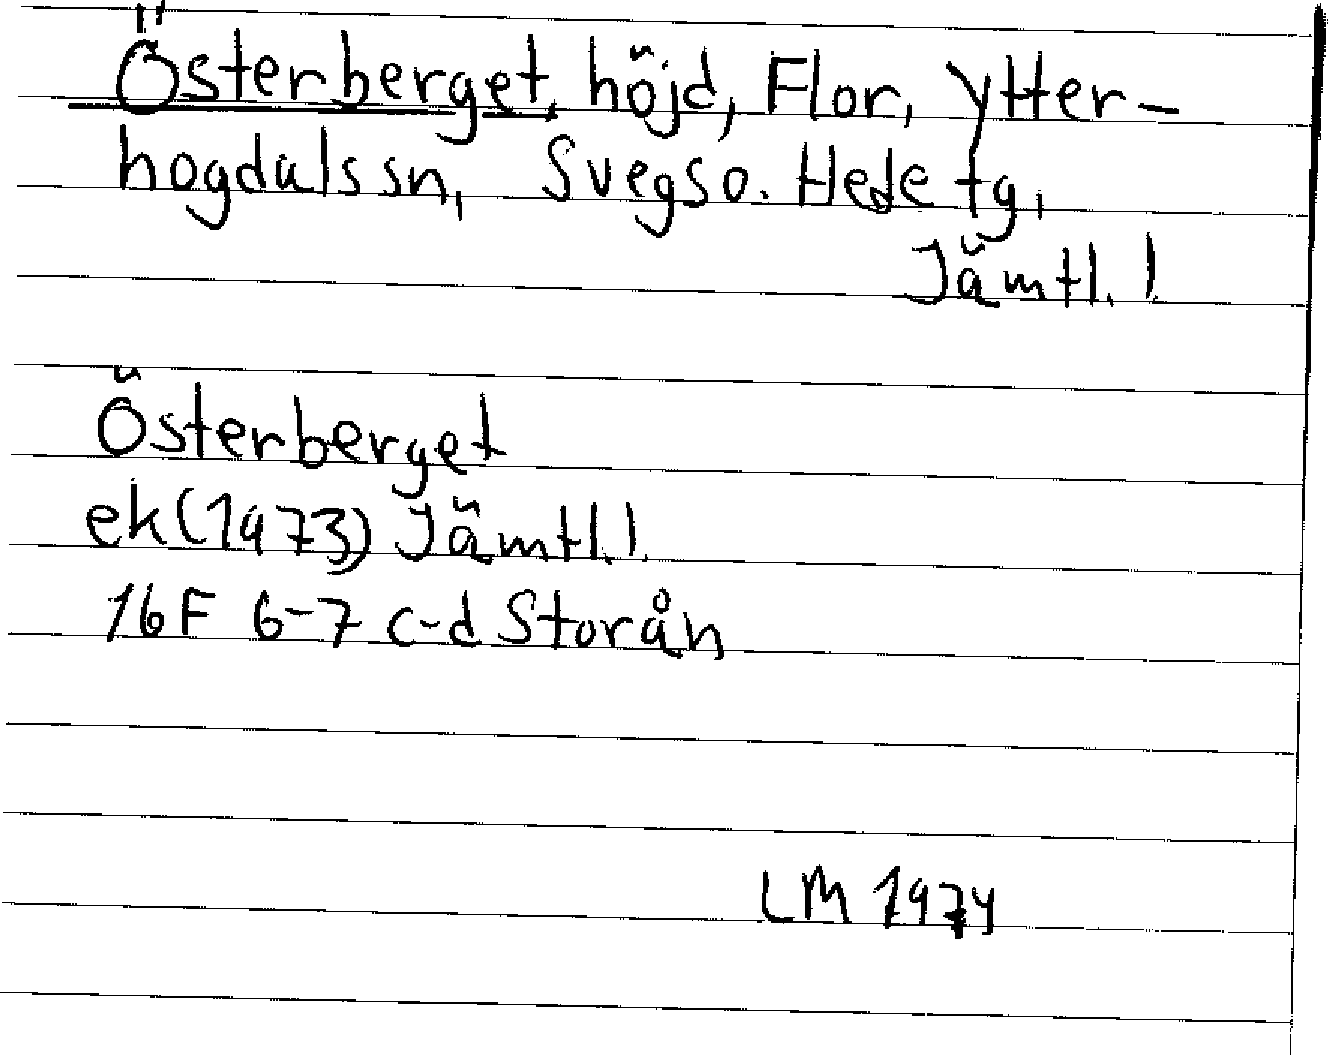 Österberget, höjd, Flor, Ytter-
hogdalssn, Svegso. Hede tg,
Jämtl. l.
Österberget
ek (1973) Jämtl. l.
16F 6-7 c-d Storån
LM 1974